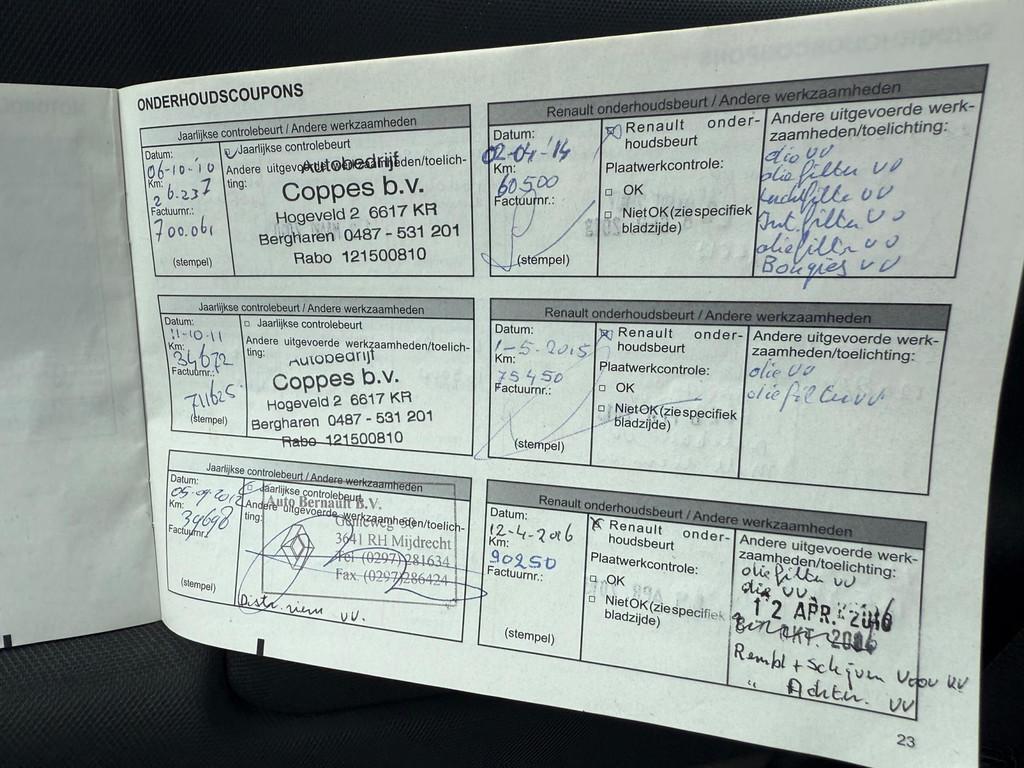 ONDERHOUDSCOUPONS
Jaarlijkse controlebeurt / Andere werkzaamheden
Datum:
06-10-'10
Km:
26.237
Factuurnr.:
700.061
(stempel)
Jaarlijkse controlebeurt
Andere uitgevoerde werkzaamheden/toelich-
ting:
Autobedrijf
Coppes b.v.
Hogeveld 2 6617 KR
Bergharen 0487 - 531 201
Rabo 121500810
Jaarlijkse controlebeurt / Andere werkzaamheden
Datum:
11-10-11
Km:
34672
Factuurnr.:
711625
(stempel)
Jaarlijkse controlebeurt
Andere uitgevoerde werkzaamheden/toelich-
ting:
Autobedrijf
Coppes b.v.
Hogeveld 2 6617 KR
Bergharen 0487 - 531 201
Rabo 121500810
Jaarlijkse controlebeurt / Andere werkzaamheden
Datum:
Km:
39698
Factuurnr.:
(stempel)
Jaarlijkse controlebeurt
Andere uitgevoerde werkzaamheden/toelich-
ting:
Auto Bernault B.V.
3641 RH Mijdrecht
Tel (0297) 281634
Fax (0297) 286424
Distr. riem
vv.
Renault onderhoudsbeurt / Andere werkzaamheden
Datum:
02-04-'14
Km:
60500
Factuurnr.:
(stempel)
Renault onder-
houdsbeurt
Plaatwerkcontrole:
OK
Niet OK (zie specifiek
bladzijde)
Andere uitgevoerde werk-
zaamheden/toelichting:
olie vv
oliefilter vv
Luchtfilter vv
Int. filter vv
oliefilter vv
Bougies vv
Renault onderhoudsbeurt / Andere werkzaamheden
Datum:
1-5-2015
Km:
75450
Factuurnr.:
(stempel)
Renault onder-
houdsbeurt
Plaatwerkcontrole:
OK
Niet OK (zie specifiek
bladzijde)
Andere uitgevoerde werk-
zaamheden/toelichting:
olie vv
oliefilter vv
Renault onderhoudsbeurt / Andere werkzaamheden
Datum:
12-4-2016
Km:
90250
Factuurnr.:
(stempel)
Renault onder-
houdsbeurt
Plaatwerkcontrole:
OK
Niet OK (zie specifiek
bladzijde)
Andere uitgevoerde werk-
zaamheden/toelichting:
oliefilter vv
olie vv.
12 APR. 2016
Rembl + Schijven voor vv
" Achter. vv
23